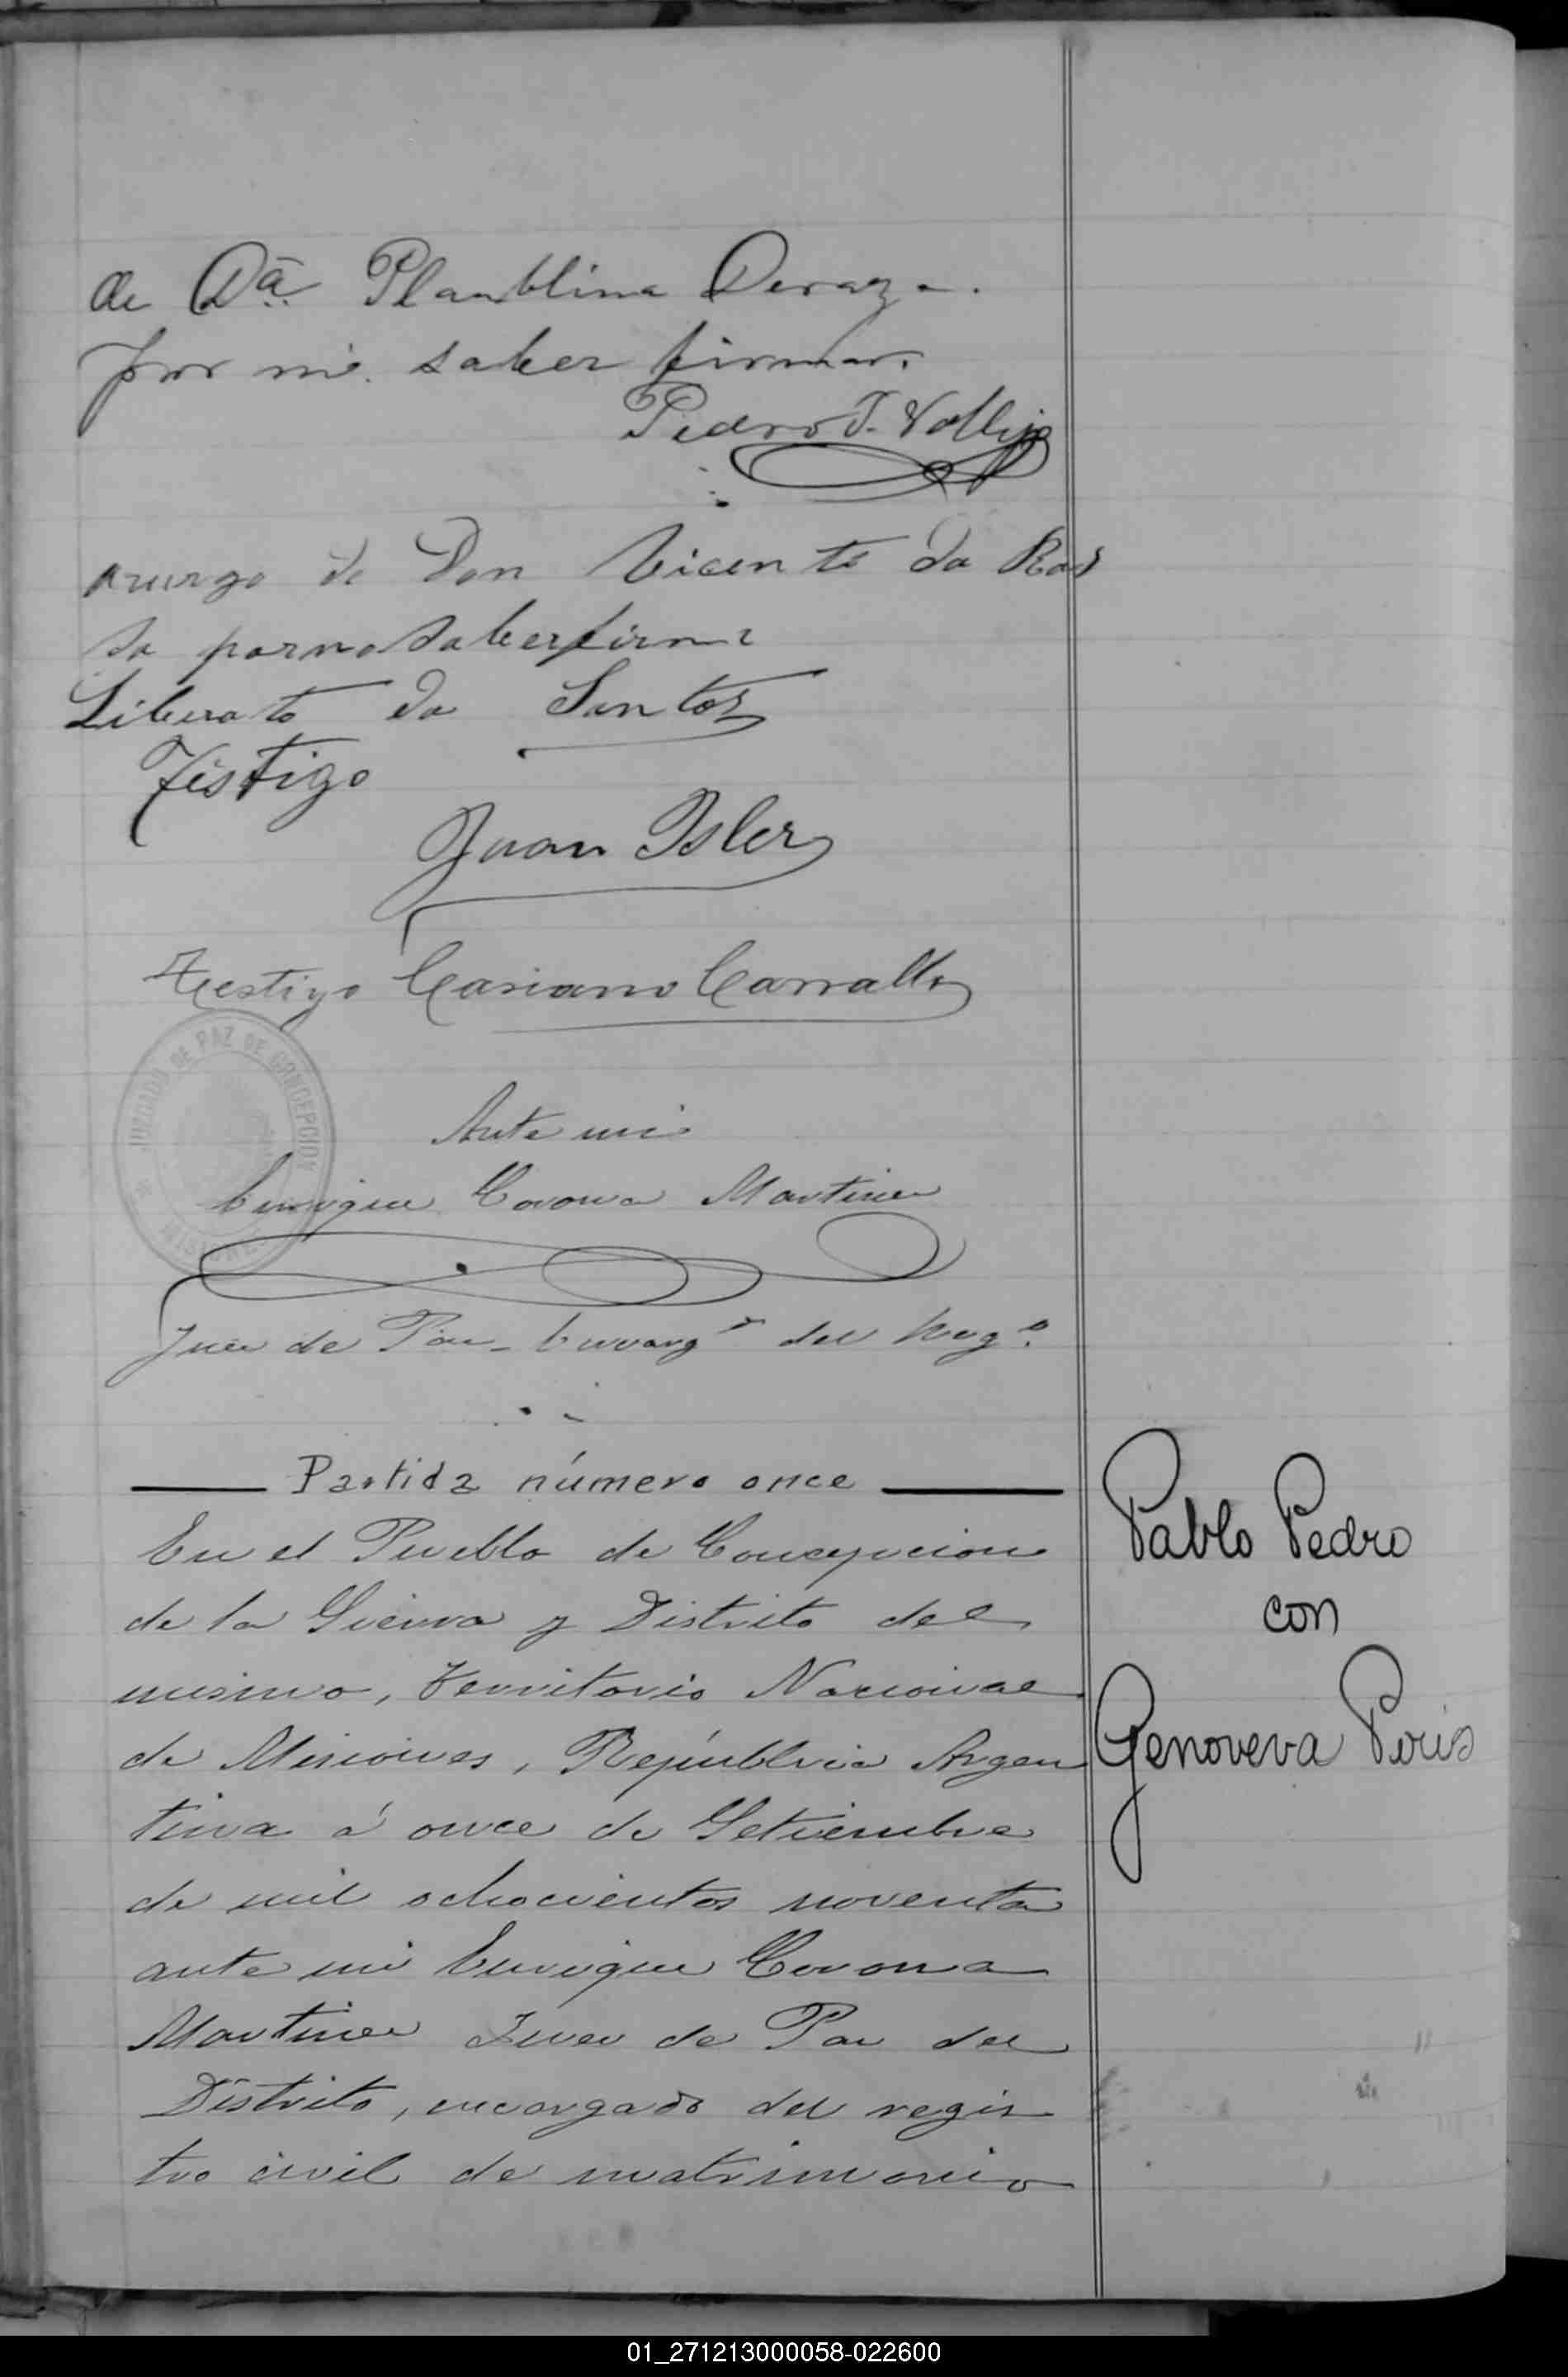 de Dª. Plantblina Deraza.
por no saber firmar.
Pedro J. Vallejo
aruego de Don Vicente da Ros
sa parnosaberfirmar
Liberato da Santos
Testigo
Juan Isler
Testigo Casiano Carvallo
JUZGADO DE PAZ DE CONCEPCION
MISIONES
Ante mi
Enrique Corona Martinez
Juez de Paz - Encargº del Regº.
Partida número once
En el Pueblo de Concepcion
de la Sierra y Distrito del
mismo, Territorio Nacional
de Misiones, República Argen
tina á once de Setiembre
de mil ochocientos noventa
ante mi Enrique Corona
Martinez Juez de Paz del
Distrito, encargado del regis
tro civil de matrimonio
Pablo Pedro
con
Genoveva Piris
01_271213000058-022600